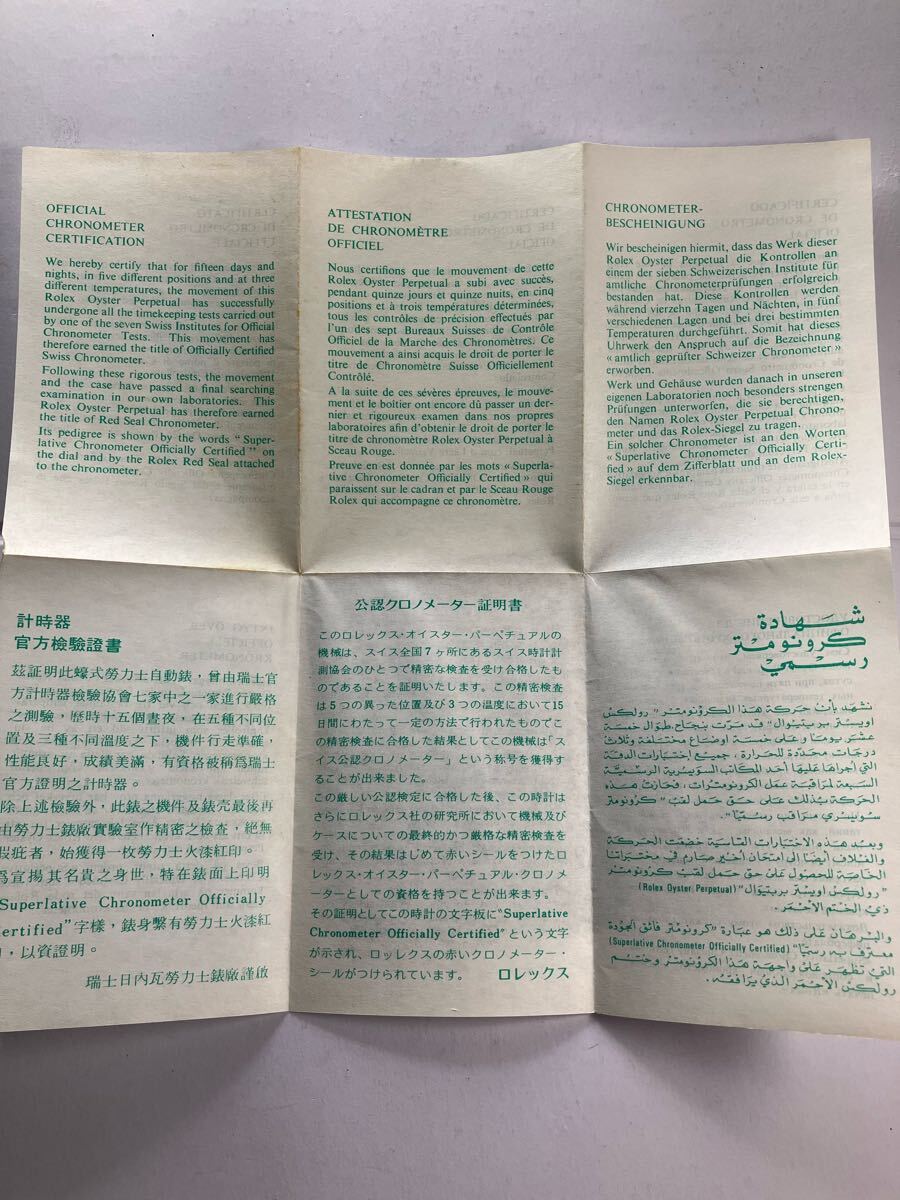 OFFICIAL
CHRONOMETER
CERTIFICATION
We hereby certify that for fifteen days and
nights, in five different positions and at three
different temperatures, the movement of this
Rolex Oyster Perpetual has successfully
undergone all the timekeeping tests carried out
by one of the seven Swiss Institutes for Official
Chronometer Tests. This movement has
therefore earned the title of Officially Certified
Swiss Chronometer.
Following these rigorous tests, the movement
and the case have passed a final searching
examination in our own laboratories. This
Rolex Oyster Perpetual has therefore earned
the title of Red Seal Chronometer.
Its pedigree is shown by the words “Super-
lative Chronometer Officially Certified” on
the dial and by the Rolex Red Seal attached
to the chronometer.
ATTESTATION
DE CHRONOMÈTRE
OFFICIEL
Nous certifions que le mouvement de cette
Rolex Oyster Perpetual a subi avec succès,
pendant quinze jours et quinze nuits, en cinq
positions et à trois températures déterminées,
tous les contrôles de précision effectués par
l'un des sept Bureaux Suisses de Contrôle
Officiel de la Marche des Chronomètres. Ce
mouvement a ainsi acquis le droit de porter le
titre de Chronomètre Suisse Officiellement
Contrôlé.
A la suite de ces sévères épreuves, le mouve-
ment et le boîtier ont encore dû passer un der-
nier et rigoureux examen dans nos propres
laboratoires afin d'obtenir le droit de porter le
titre de chronomètre Rolex Oyster Perpetual à
Sceau Rouge.
Preuve en est donnée par les mots «Superla-
tive Chronometer Officially Certified» qui
paraissent sur le cadran et par le Sceau Rouge
Rolex qui accompagne ce chronomètre.
CHRONOMETER-
BESCHEINIGUNG
Wir bescheinigen hiermit, dass das Werk dieser
Rolex Oyster Perpetual die Kontrollen an
einem der sieben Schweizerischen Institute für
amtliche Chronometerprüfungen erfolgreich
bestanden hat. Diese Kontrollen werden
während vierzehn Tagen und Nächten, in fünf
verschiedenen Lagen und bei drei bestimmten
Temperaturen durchgeführt. Somit hat dieses
Uhrwerk den Anspruch auf die Bezeichnung
«amtlich geprüfter Schweizer Chronometer»
erworben.
Werk und Gehäuse wurden danach in unseren
eigenen Laboratorien noch besonders strengen
Prüfungen unterworfen, die sie berechtigen,
den Namen Rolex Oyster Perpetual Chrono-
meter und das Rolex-Siegel zu tragen.
Ein solcher Chronometer ist an den Worten
«Superlative Chronometer Officially Certi-
fied» auf dem Zifferblatt und an dem Rolex-
Siegel erkennbar.
計時器
官方檢驗證書
茲証明此蠔式勞力士自動錶，曾由瑞士官
方計時器檢驗協會七家中之一家進行嚴格
之測驗，歷時十五個晝夜，在五種不同位
置及三種不同溫度之下，機件行走準確，
性能良好，成績美滿，有資格被稱爲瑞士
官方證明之計時器。
除上述檢驗外，此錶之機件及錶壳最後再
由勞力士錶廠實驗室作精密之檢查，絕無
瑕疵者，始獲得一枚勞力士火漆紅印。
爲宣揚其名貴之身世，特在錶面上印明
“Superlative Chronometer Officially
Certified”字樣，錶身繫有勞力士火漆紅
，以資證明。
瑞士日內瓦勞力士錶廠謹啟
公認クロノメーター証明書
このロレックス・オイスター・パーペチュアルの
機械は、スイス全国7ヶ所にあるスイス時計計
測協会のひとつて精密な検査を受け合格したも
のであることを証明いたします。この精密検査
は5つの異った位置及び3つの温度において15
日間にわたって一定の方法で行われたものでこ
の精密検査に合格した結果としてこの機械は「ス
イス公認クロノメーター」という称号を獲得す
ることが出来ました。
この厳しい公認検定に合格した後、この時計は
さらにロレックス社の研究所において機械及び
ケースについての最終的かつ厳格な精密検査を
受け、その結果はじめて赤いシールをつけたロ
レックス・オイスター・パーペチュアル・クロノメ
ーターとしての資格を持つことが出来ます。
その証明としてこの時計の文字板に“Superlative
Chronometer Officially Certified”という文字
が示され、ロッレクスの赤いクロノメーター・
シールがつけられています。 ロレックス
شهادة
كرونومتر
رسمي
نشهد بأن حركة هذا الكرونومتر "رولكس
اويستر بربتيوال" قد مرت بنجاح، طوال خمسة
عشر يوما وعلى خمسة اوضاع مختلفة وثلاث
درجات محددة للحرارة، جميع اختبارات الدقة
التي أجراها عليها أحد المكاتب السويسرية الرسمية
السبعة لمراقبة عمل الكرونومترات، فحازت هذه
الحركة بذلك على حق حمل لقب "كرونومتر
سويسري مراقب رسميا".
وبعد هذه الاختبارات القاسية خضعت الحركة
والغلاف أيضا الى امتحان أخير صارم في مختبراتنا
الخاصة للحصول على حق حمل لقب كرونومتر
"رولكس اويستر بربتيوال" (Rolex Oyster Perpetual)
ذي الختم الأحمر.
والبرهان على ذلك هو عبارة "كرونومتر فائق الجودة
معترف به رسميا" (Superlative Chronometer Officially Certified)
التي تظهر على واجهة هذا الكرونومتر وختم
رولكس الأحمر الذي يرافقه.